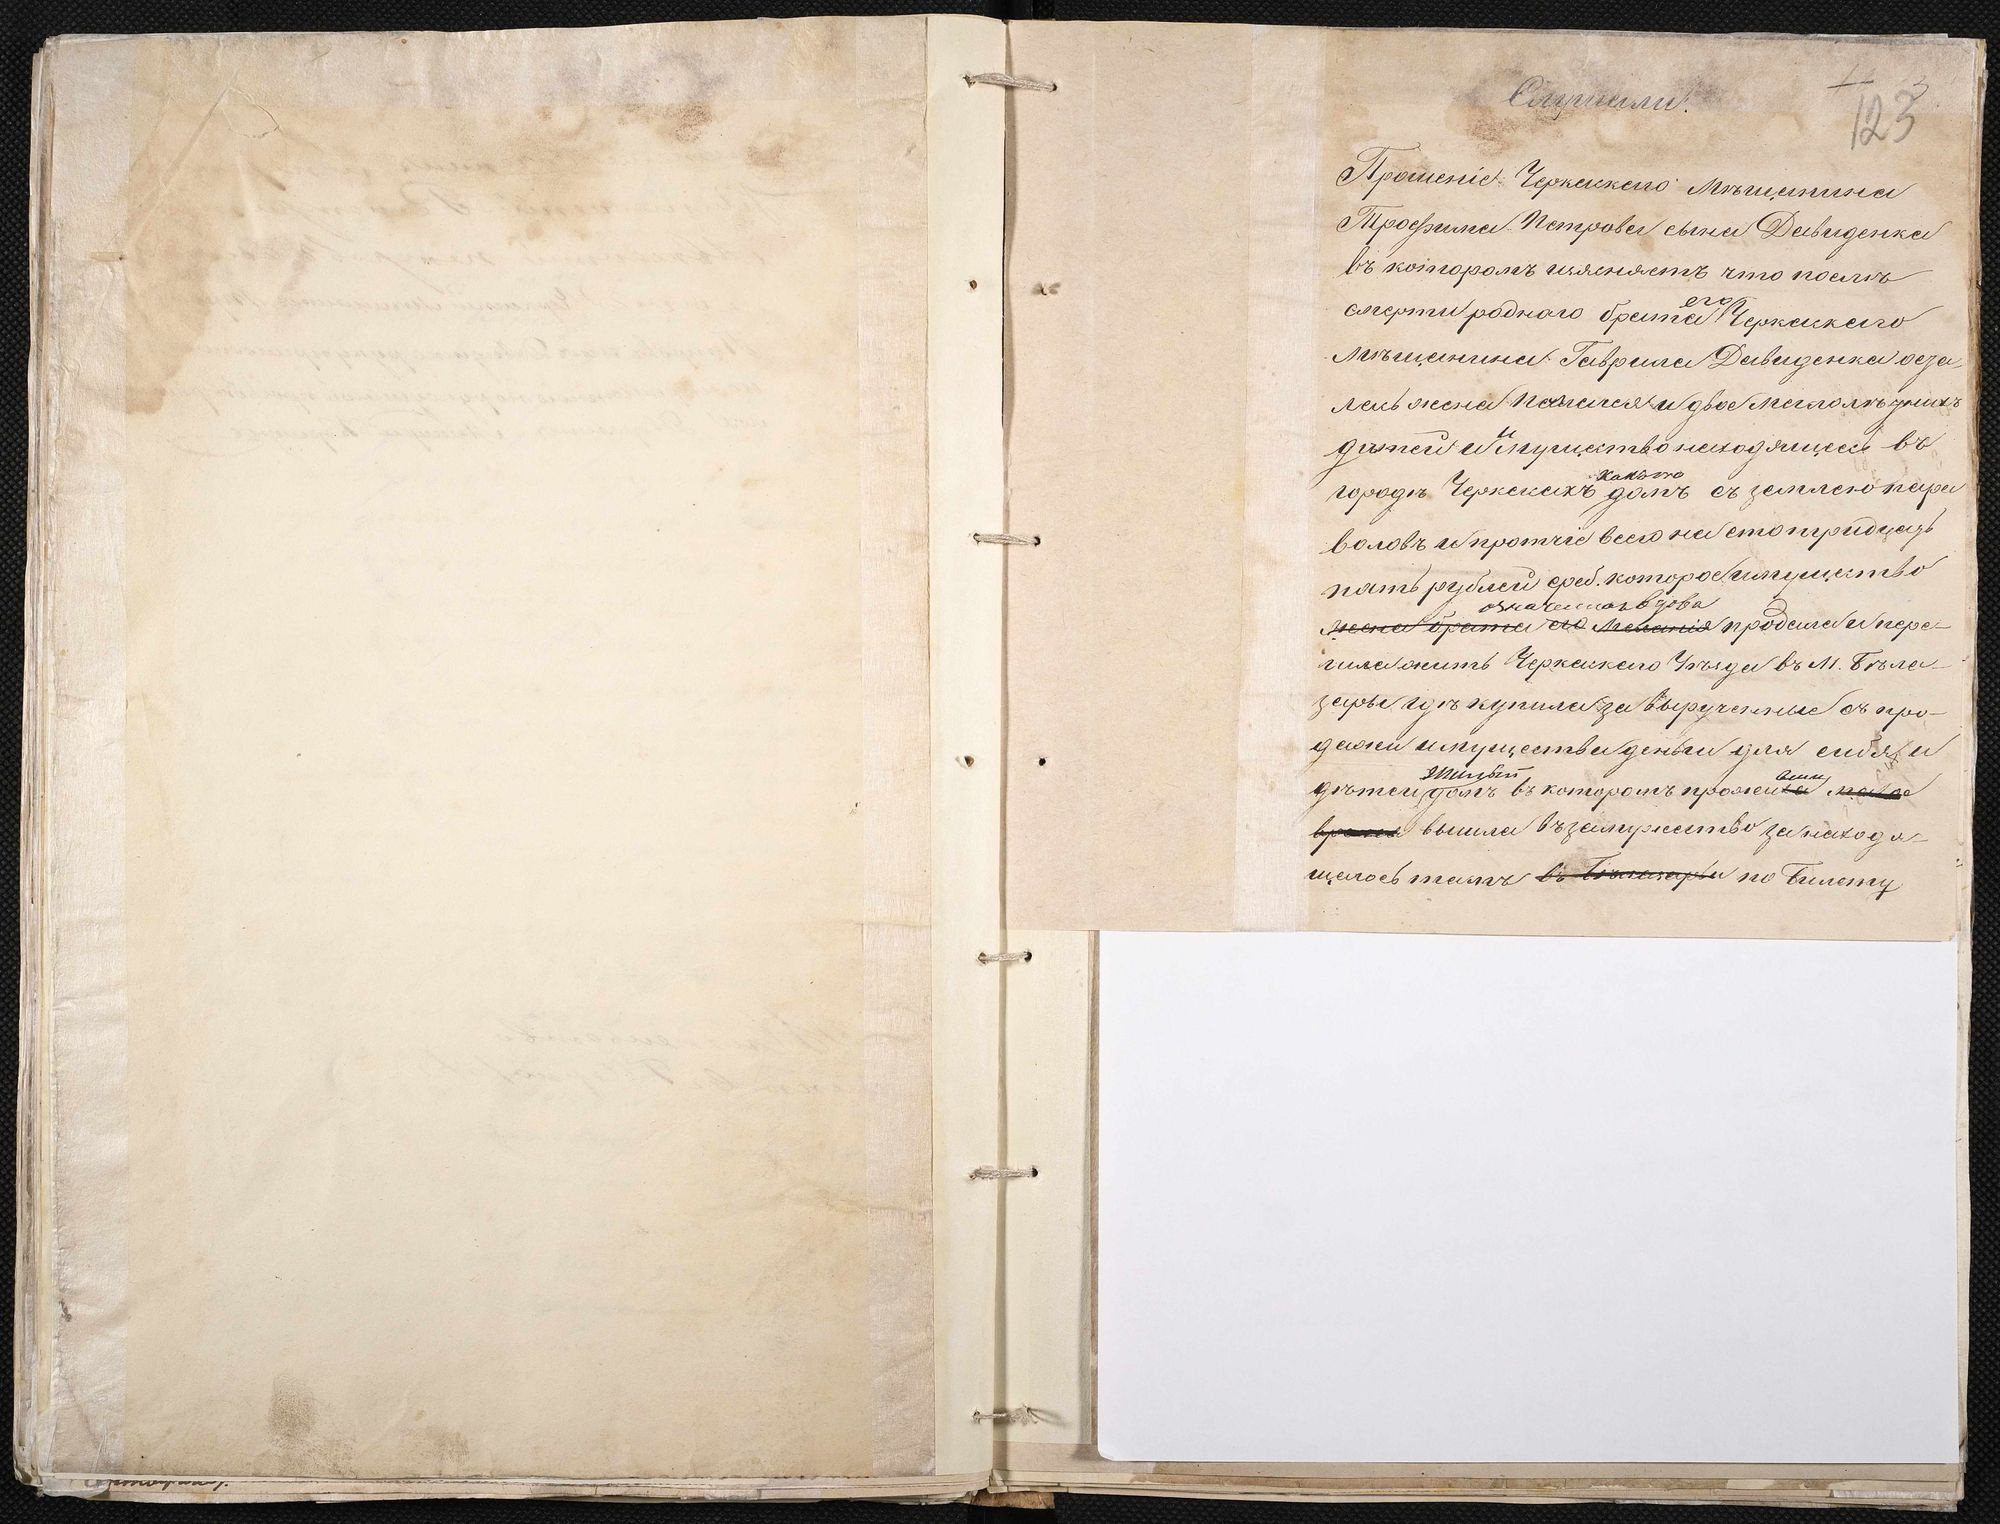 Слушали:
123
Прошеніе Черкаскаго Мѣщанина
Трофима Петрова сына Давиденка
въ которомъ изясняетъ что послѣ
смерти роднаго брата его Черкаскаго
Мѣщанина Гаврила Давиденка оста-
лась жена и двое малолѣтнихъ
дѣтей и имущество находящееся въ
городѣ Черкасахъ какъ то домъ съ землею пара
воловъ и протчіе всего на сто тридцадь
пять рублей среб. которое имущество
означенная вдова
жена брата его Меланія продала и пере-
шла жить Черкаскаго Уѣзда въ М. Бѣла-
зерье гдѣ купила за вырученные съ про-
дажи имущества деньги для себя и
дѣтей жилый домъ въ которомъ проживши малое
время вышла въ замужество за находя-
щегось тамъ въ Бѣлазерьи по билету